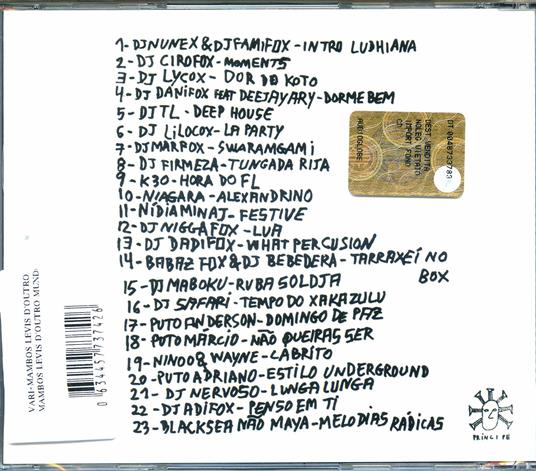 1-DJ NUNEX & DJ FAMIFOX - INTRO LUDHIANA
2-DJ CIROFOX - MOMENTS
3-DJ LYCOX - DOR DO KOTO
4-DJ DANIFOX FEAT DEEJAY ARY - DORME BEM
5-DJ TL - DEEP HOUSE
6-DJ LILOCOX - LA PARTY
7-DJ MARFOX - SWARAMGAMI
8-DJ FIRMEZA - TUNGADA RIJA
9-K30 - HORA DO FL
10-NIAGARA - ALEXANDRINO
11-NÍDIA MINAJ - FESTIVE
12-DJ NIGGAFOX - LUA
13-DJ DADIFOX - WHAT PERCUSION
14-BABAZ FOX & DJ BEBEDERA - TARRAXEÍ NO
BOX
15-DJ MABOKU - RUBA SOLDJA
16-DJ SAFARI - TEMPO DO XAKAZULU
17-PUTO ANDERSON - DOMINGO DE PAZ
18-PUTO MÁRCIO - NÃO QUEIRAS SER
19-NINOO & WAYNE - CABRITO
20-PUTO ADRIANO - ESTILO UNDERGROUND
21-DJ NERVOSO - LUNGA LUNGA
22-DJ ADIFOX - PENSO EM TI
23-BLACKSEA NÃO MAYA - MELODIAS RÁDICAS
DT 0048733783
DEST. VENDITA
NOLEG VIETATO
IMPORT FONO
CD
AUDIOGLOBE
VARI-MAMBOS LEVIS D'OUTRO
MAMBOS LEVIS D'OUTRO MUND
0 634457 737426
PRÍNCIPE